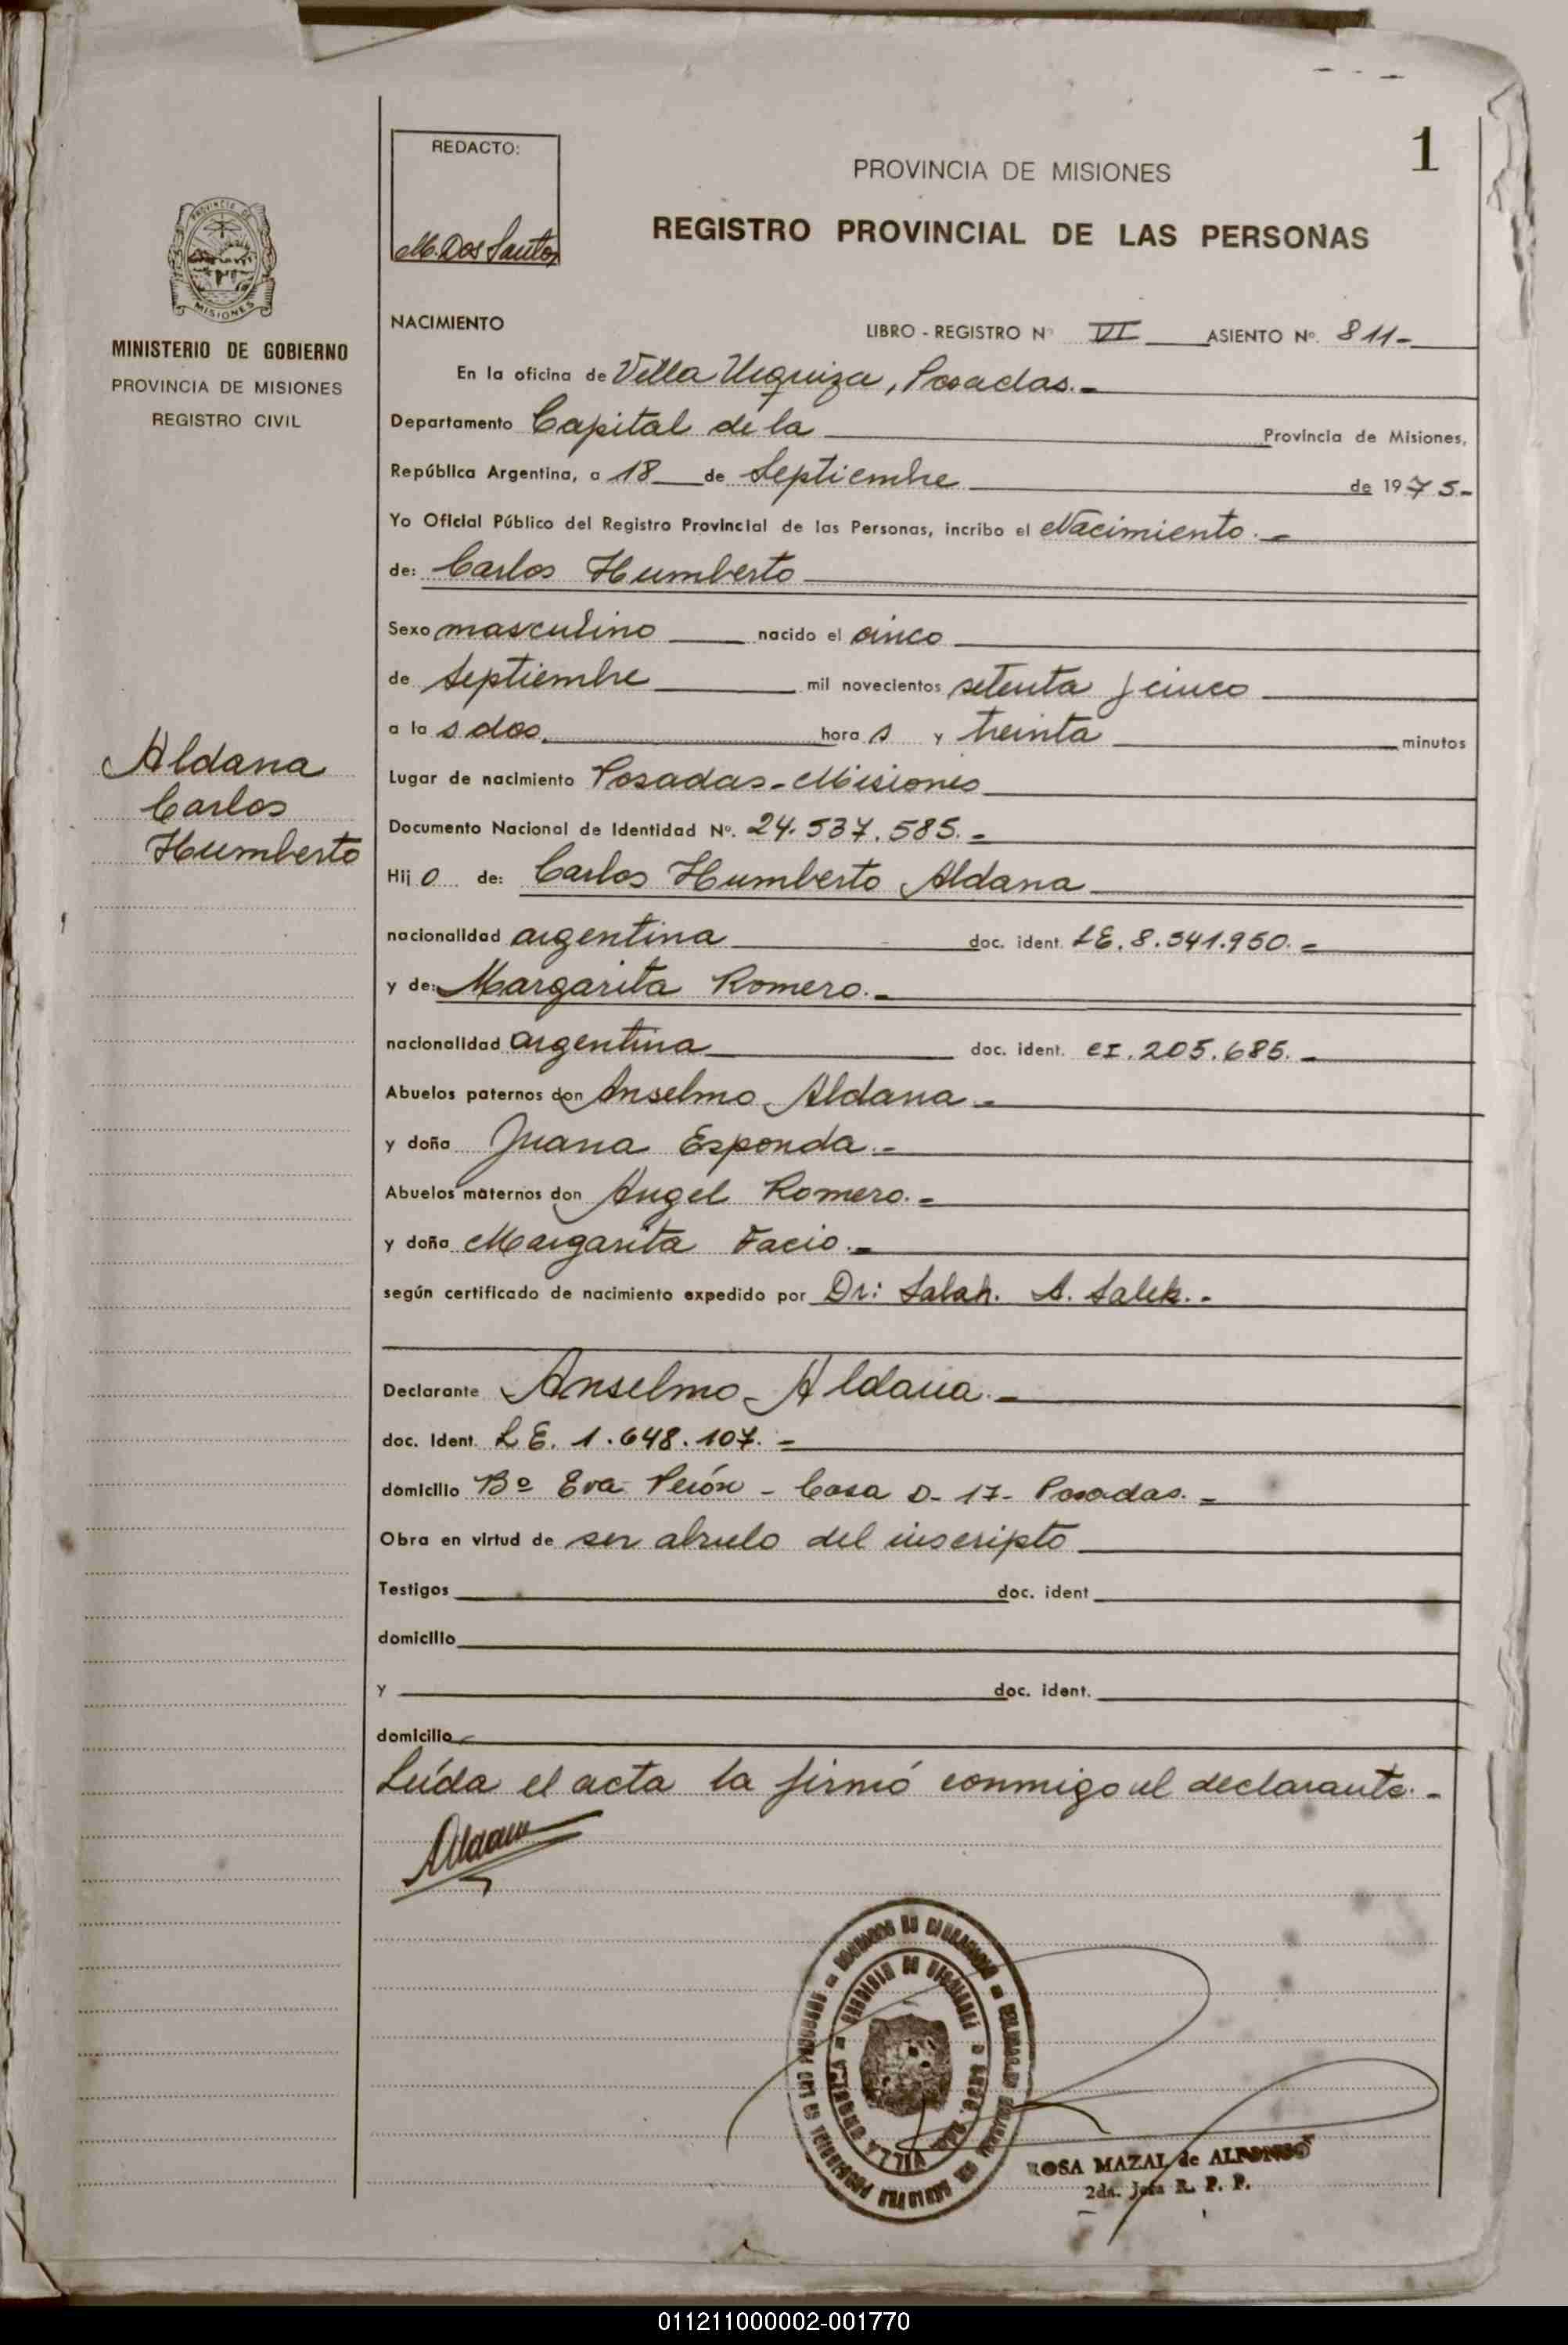 1
REDACTO:
M. Dos Santos
PROVINCIA DE MISIONES
REGISTRO PROVINCIAL DE LAS PERSONAS
PROVINCIA DE
MISIONES
MINISTERIO DE GOBIERNO
PROVINCIA DE MISIONES
REGISTRO CIVIL
Aldana
Carlos
Humberto
NACIMIENTO LIBRO - REGISTRO Nº VI ASIENTO Nº. 811-
En la oficina de Villa Urquiza, Posadas.-
Departamento Capital de la Provincia de Misiones,
República Argentina, a 18 de Septiembre de 1975-
Yo Oficial Público del Registro Provincial de las Personas, incribo el Nacimiento.-
de: Carlos Humberto
Sexo masculino nacido el cinco
de Septiembre mil novecientos setenta y cinco
a las dos. horas y treinta minutos
Lugar de nacimiento Posadas-Misiones
Documento Nacional de Identidad Nº. 24.537.585.-
Hijo de: Carlos Humberto Aldana
nacionalidad argentina doc. ident. LE. 8.541.950.-
y de: Margarita Romero.-
nacionalidad argentina doc. ident. CI. 205.685.-
Abuelos paternos don Anselmo Aldana.-
y doña Juana Esponda.-
Abuelos maternos don Angel Romero.-
y doña Margarita Facio.-
según certificado de nacimiento expedido por Dr: Salah. A. Salek.-
Declarante Anselmo Aldana.-
doc. Ident. L E. 1.648.107.-
domicilio Bº Eva Perón - Casa D-17- Posadas.-
Obra en virtud de ser abuelo del inscripto
Testigos doc. ident
domicilio
y doc. ident.
domicilio
Leída el acta la firmó conmigo el declarante.-
Aldana
VILLA URQUIZA
ROSA MAZAL de ALFONSO
2da. Jefa R. P. P.
011211000002-001770